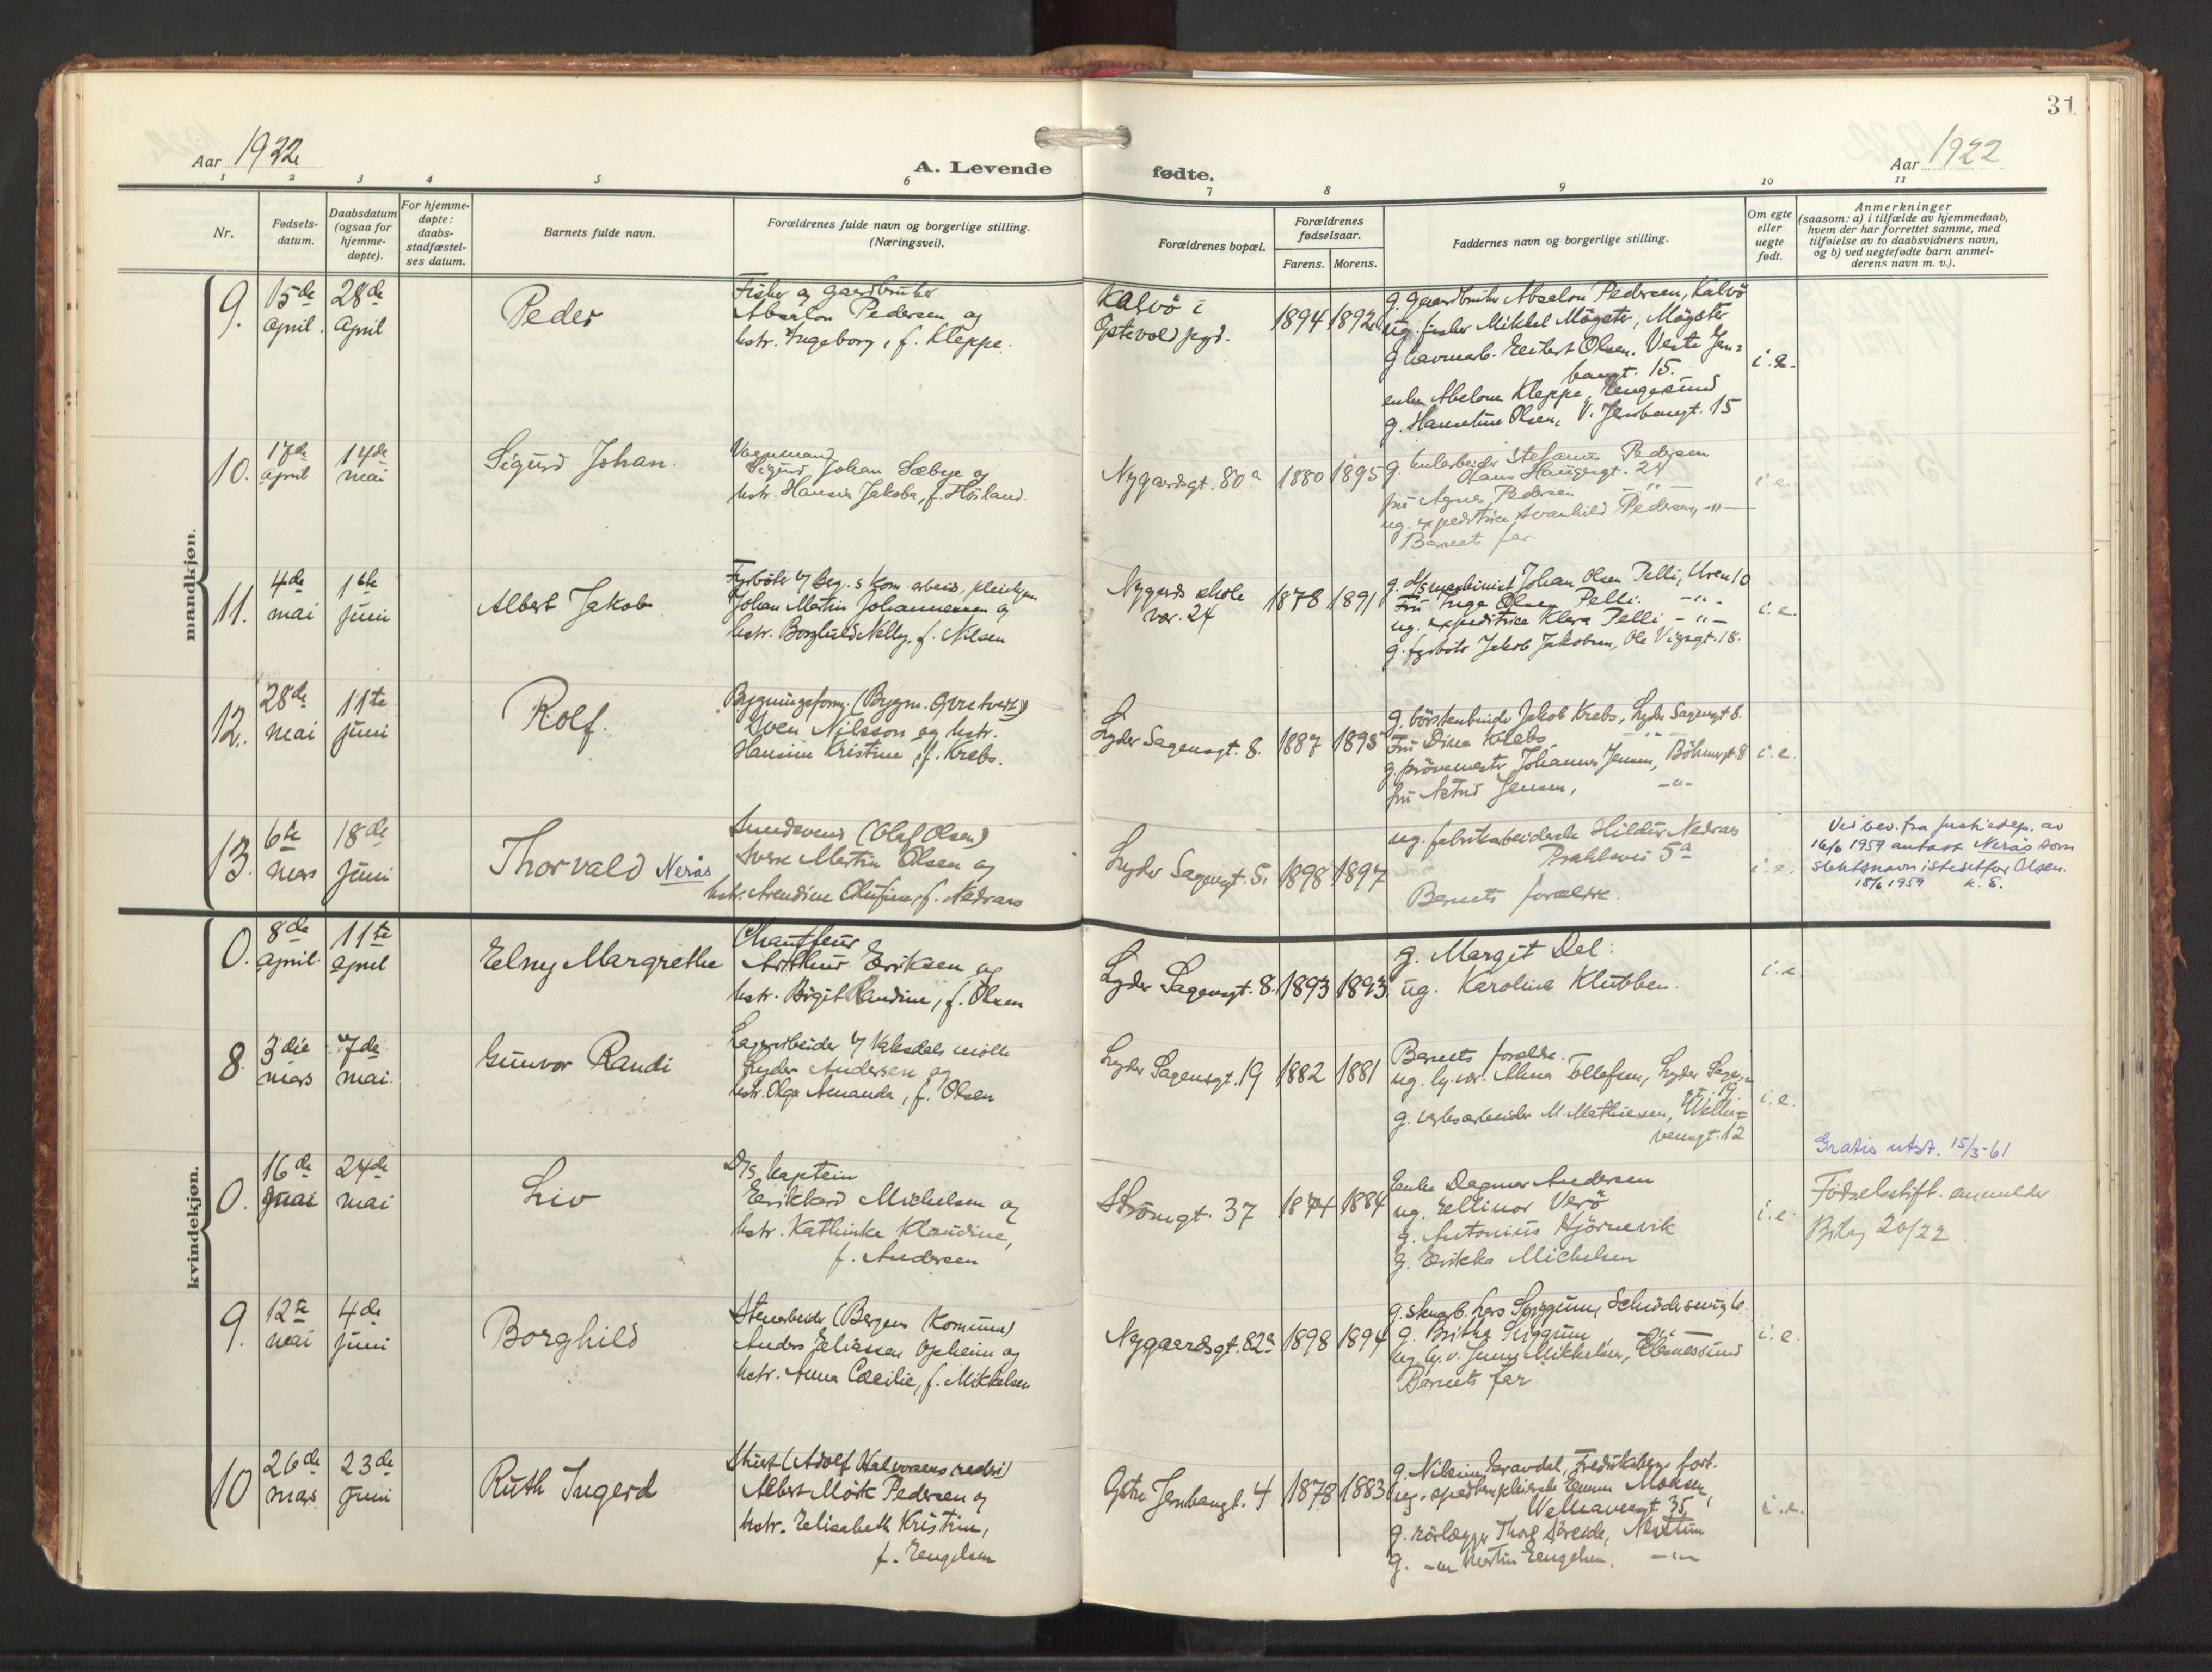 31
Aar 1922
A. Levende
fødte.
Aar 1922
1 2 3 4 5 6 7 8 9 10 11
Nr.
Fødsels-
datum.
Daabsdatum
(ogsaa for
hjemme-
døpte).
For hjemme-
døpte:
daabs-
stadfæstel-
ses datum.
Barnets fulde navn.
Forældrenes fulde navn og borgerlige stilling.
(Næringsvei).
Forældrenes bopæl.
Forældrenes
fødselsaar.
Farens. Morens.
Faddernes navn og borgerlige stilling.
Om egte
eller
uegte
født.
Anmerkninger
(saasom: a) i tilfælde av hjemmedaab,
hvem der har forrettet samme, med
tilføielse av to daabsvidners navn,
og b) ved uegtefødte barn anmel-
derens navn m. v.).
mandkjøn.
9.
15de
april.
28de
April
Peder
Fisker og gaardbruker
Absalon Pedersen og
hstr. Ingeborg, f. Kleppe.
Kalvö i
1894 1892
g. gaardbruker Absalon Pedersen, Kalvö
ug. fisker Mikkel Mögster, Mögster
Olsen, Vestre Jern=
bangt. 15.
enke Abelone Kleppe,
g. Hanseline Olsen, V. Jernbangt. 15
i. e.
10.
17de
april
14de
mai
Sigurd Johan.
Vognmand
Sigurd Johan Sæbye og
hstr. Hansine Jakoba, f. Höiland.
Nygaardsgt. 80a
1880 1895
g. Stefanus Pedersen
Hans Haugesgt. 24
fru Agnes Pedersen -"-
ug. expeditrice Svanhild Pedersen, -"-
Barnets far.
i. e.
11.
4de
mai
1ste
juni
Albert Jakob
Fyrböter
Johan Martin Johannessen og
hstr. Borghild Nelly, f. Nilsen
Nygaards skole
vær. 24
1878 1891
g. Johan Olsen Pelli, Uren 10
Fru Inga Olsen Pelli. -"-
ug. expeditrice Klara Pelli -"-
g. fyrböter Jakob Jakobsen, Ole Vigsgt. 18.
i. e.
12.
28de
mai
11te
juni
Rolf.
Sven Nilsson og hstr.
Hansine Kristine, f. Krebs.
Lyder Sagensgt. 8.
1887 1895
g. börstenbinder Jakob Krebs, Lyder Sagensgt 8.
Fru Dina Krebs, -"-
g. Johannes Jensen, Böhmergt. 8
fru Astrid Jensen, -"-
i. e.
13.
6te
mars
18de
juni
Thorvald Nerås
Smedsvend (Olaf Olsen)
Sverre Martin Olsen og
hstr. Arendine Olufine, f. Nedraas
Lyder Sagensgt. 5.
1898 1897
ug. fabrikarbeiderske Hildur Nedraas
5a
Barnets forældre.
i. e.
Ved bev. fra Justisdep. av
16/6 1959 antatt Nerås som
slektsnavn istedetfor Olsen.
18/6 1959 K. E.
kvindekjøn.
0.
8de
april.
11te
april
Elny Margrethe
Chauffeur
Arthur Eriksen og
hstr. Birgit Randine, f. Olsen
Lyder Sagensgt. 8.
1893 1893.
g. Margit Del.
ug. Karoline Klubben.
i. e.
8.
3die
mars
7de
mai.
Gunvor Randi
Lagerarbeider v/ Vaksdals mölle
Lyder Andersen og
hstr. Olga Amanda, f. Olsen
Lyder Sagensgt. 19
1882 1881
Barnets forældre.
ug. Alma Tollefsen, Lyder Sagens
gt. 19.
g. M. Mathiesen, Welha=
vensgt. 12
i. e.
Gratis utst. 15/3-61
0.
16de
mai
24de
mai
Liv
D/S kaptein
Erikkard Michelsen og
hstr. Kathinka Klaudine,
f. Andersen
Strömgt. 37
1874 1884
Enke Dagmar Andersen
ug. Ellinor Verö
g. Antonius Hjörnevik
g. Erikka Michelsen
i. e.
Födselsstift. anmelder.
Bilag 20/22
9.
12te
mai
4de
juni
Borghild
Stenarbeider (Bergens Komune)
Anders Eliassen Opheim og
hstr. Anna Cecilie, f. Mikkelsen
Nygaardsgt. 82a
1898 1894
g. stenarb. Lars
g. Britha -"-
ug. Jenny Mikkelsen,
Barnets far
i. e.
10
26de
mars
23de
juni
Ruth Ingerd
Albert Mörk Pedersen og
hstr. Elisabeth Kristine,
f. Engelsen
Östre Jernbangt. 4
1878 1883
g. Fredriksbergs fort.
Welhavensgt 35,
g. rörlægger Söreide, Nesttun
g. -"- Martin Engelsen. -"-
i. e.